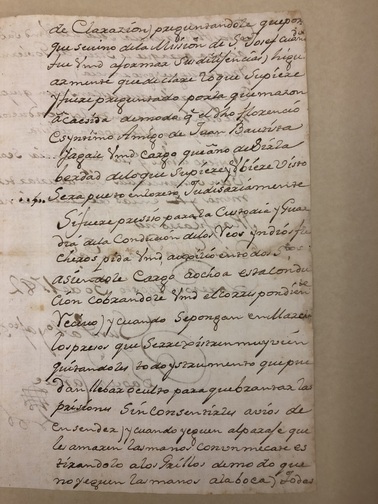 de Clarazion) preguntandole que por
que se vino de la Mission de Sn. Josef cuando
fue Vmd aformar Sus diligencias, Y igu
armente que declare lo que Supiere
Y fuere preguntado por la que mazon
acaesida demoda q. el dho Florencio
Es yntimo Amigo de Juan Bautista
Hagale Vmd Cargo que aun de Dir la
berdad delo que Supiere y ubiere Visto
Sera puesto en loreto Judisiariamente
Si fuere presiso para la Custodia y Gua
dia de la Condusion de los Reos Yndios fle
cheros pida Vmd auxilio en todos
asiendole Cargo a ochoa esta Condu
cion cobrandole Vmd el Correspondien
Recivo) y cuando Sepongan en Marcha
los presos que Serrexistren muy vien
quitandoles todo ystrumento que pue
dan llebar oculto para quebrantar las
prisiones Sin Consentirles avios de
ensender) y cuando yeguen al paraje que
les amaren las manos con un mecate es
tirandolo alos Grillos demodo que
no yeguen las manos ala boca) todos